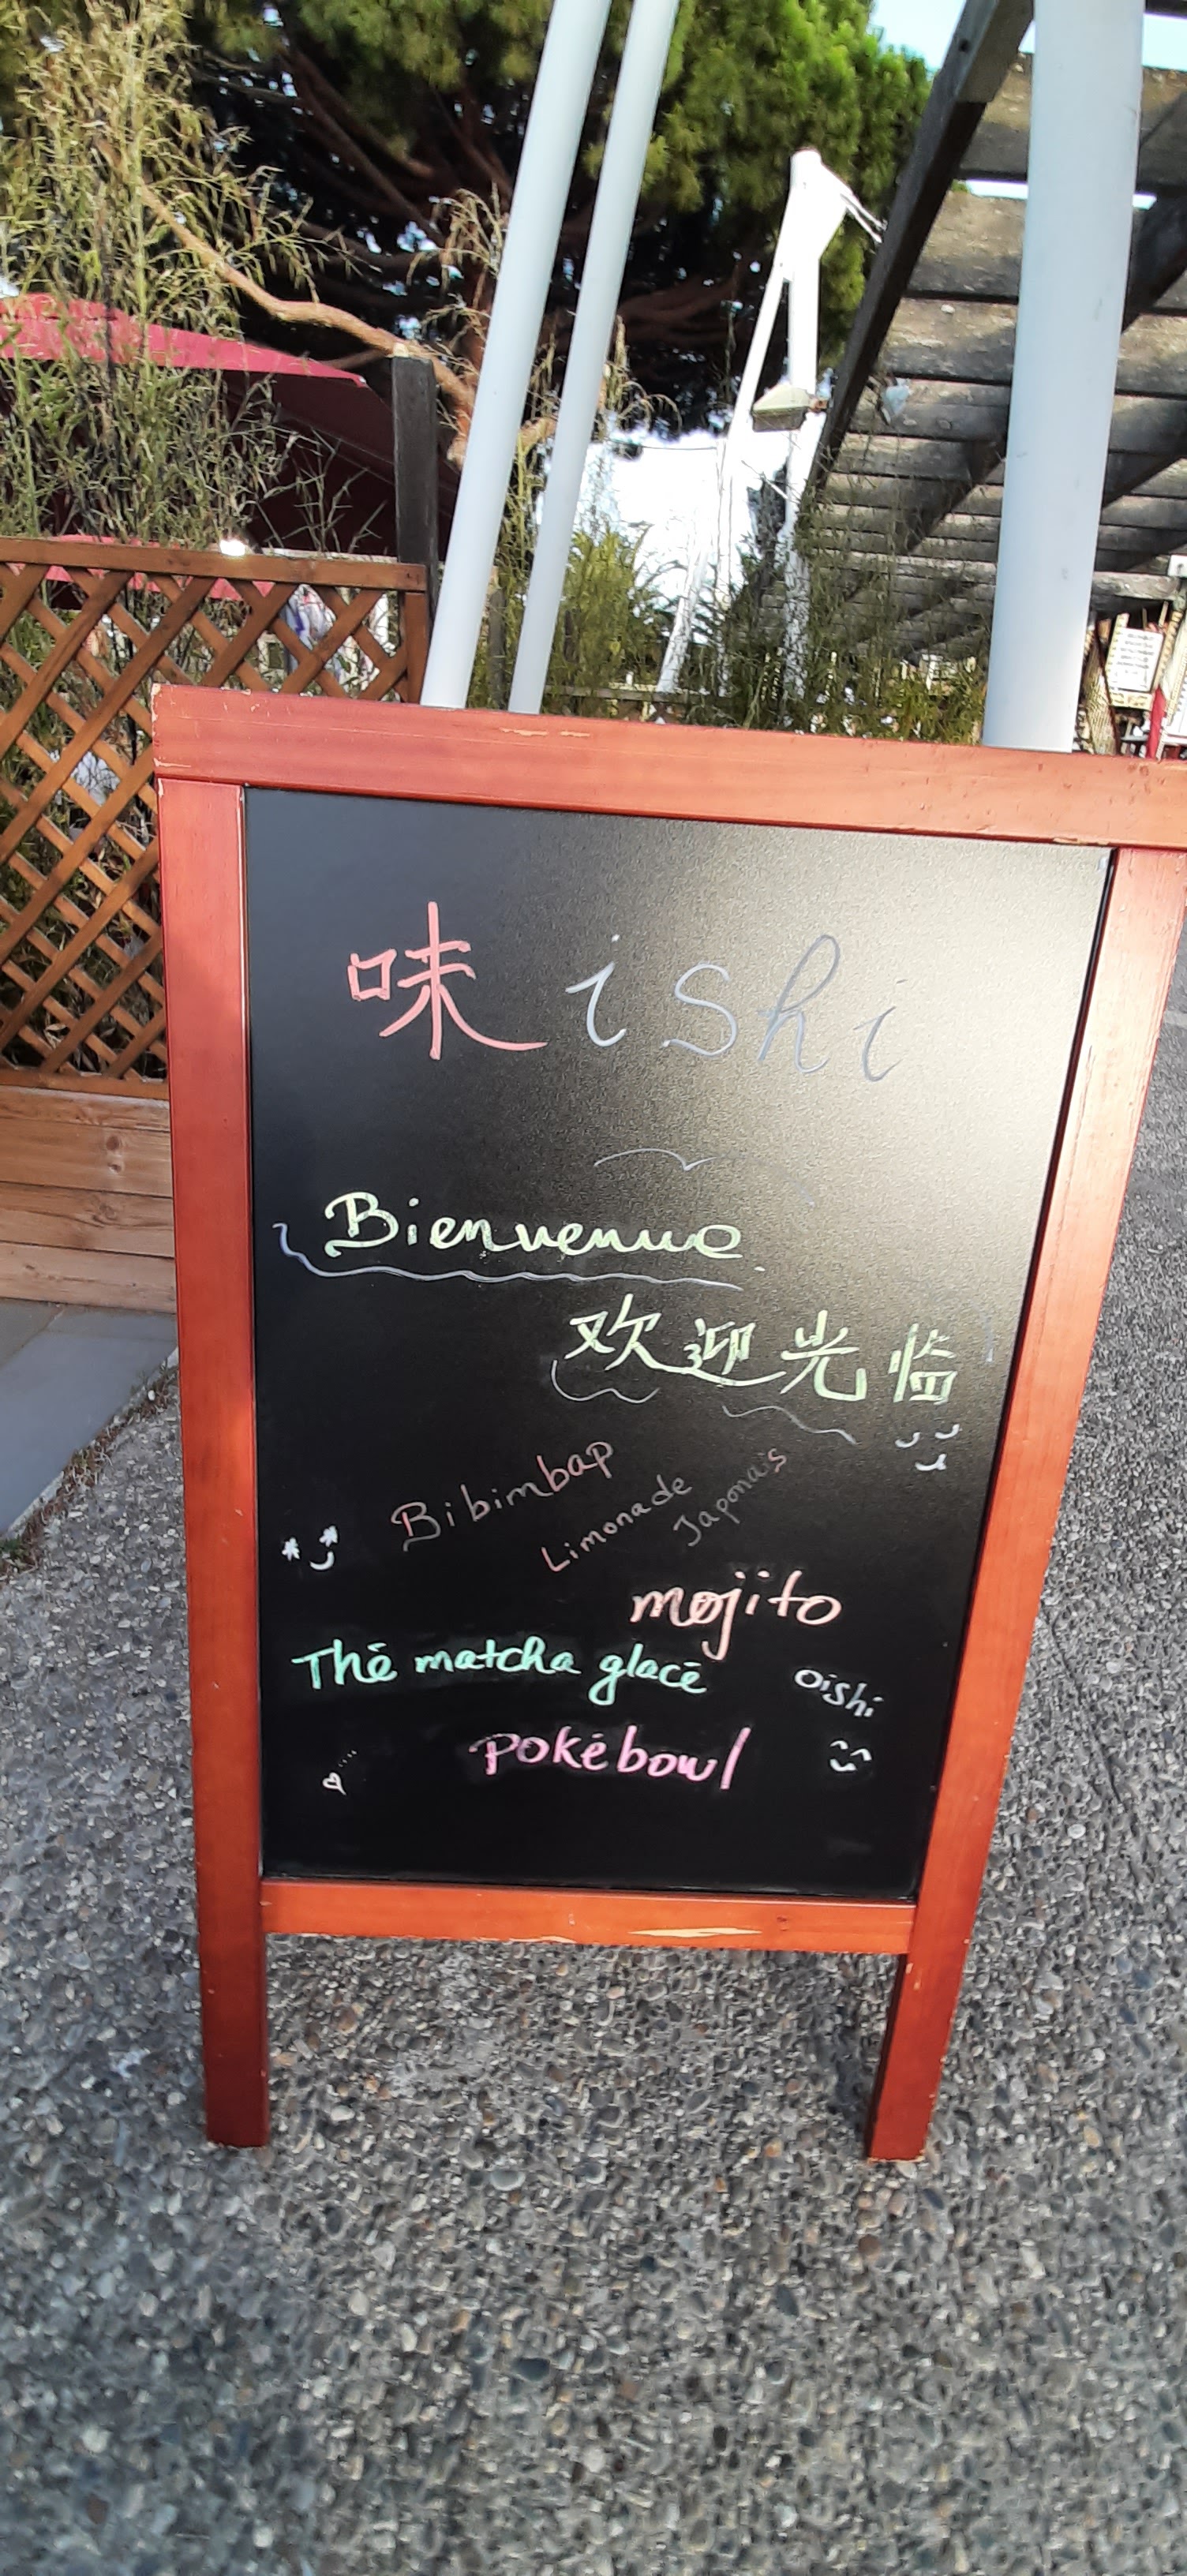 味 ishi
Bienvenue
欢迎光临
Bibimbap
Limonade
Japonais
mojito
Thé matcha glacé
Oishi
Poké bowl